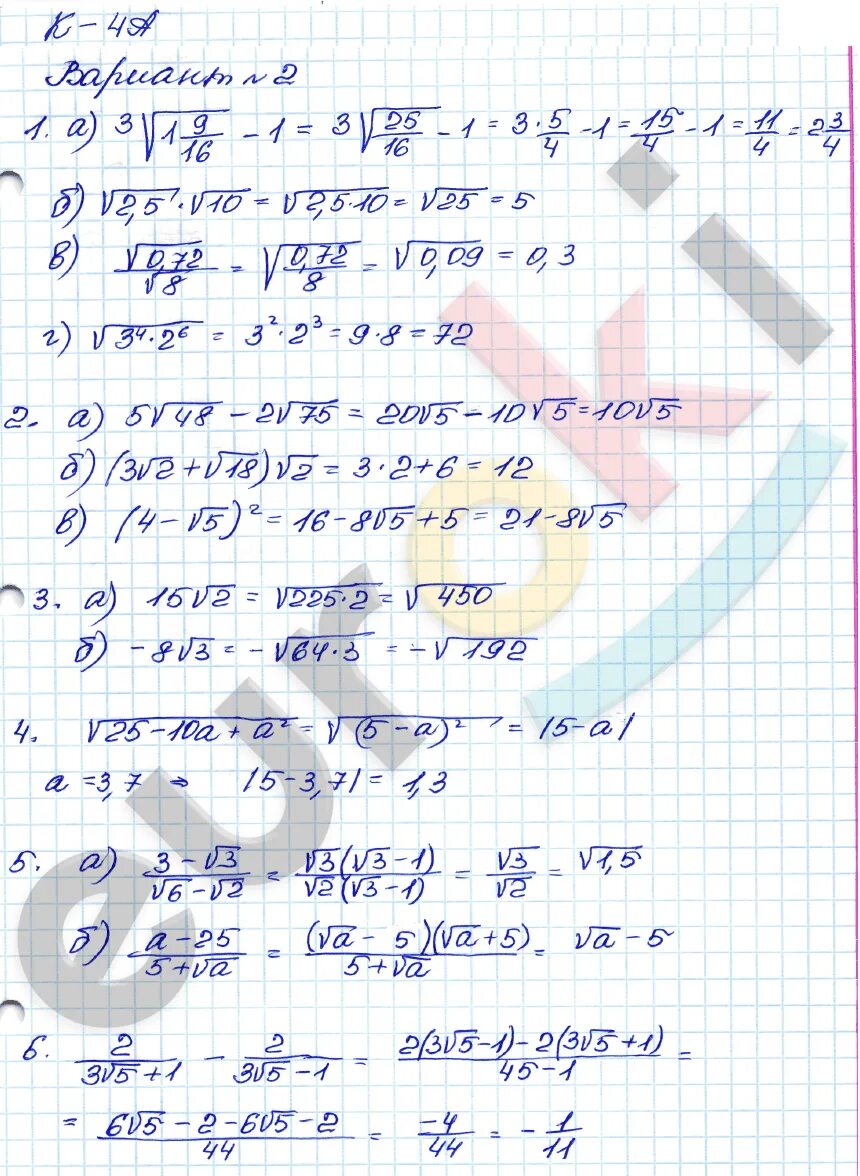 К – 4А
Вариант № 2
1. а) 3√(1 9/16) – 1 = 3√(25/16) – 1 = 3·5/4 – 1 = 15/4 – 1 = 11/4 = 2 3/4
б) √2,5 · √10 = √(2,5·10) = √25 = 5
в) √0,72/√8 = √(0,72/8) = √0,09 = 0,3
г) √(3⁴·2⁶) = 3²·2³ = 9·8 = 72
2. а) 5√48 – 2√75 = 20√5 – 10√5 = 10√5
б) (3√2 + √18)√2 = 3·2 + 6 = 12
в) (4 – √5)² = 16 – 8√5 + 5 = 21 – 8√5
3. а) 15√2 = √(225·2) = √450
б) – 8√3 = –√(64·3) = –√192
4. √(25 – 10а + а²) = √((5 – а)²) = |5 – а|
а = 3,7 ⇒ |5 – 3,7| = 1,3
5. а) (3 – √3)/(√6 – √2) = √3(√3 – 1)/√2(√3 – 1) = √3/√2 = √1,5
б) (а – 25)/(5 + √а) = (√а – 5)(√а + 5)/(5 + √а) = √а – 5
6. 2/(3√5 + 1) – 2/(3√5 – 1) = (2(3√5 – 1) – 2(3√5 + 1))/(45 – 1) =
= (6√5 – 2 – 6√5 – 2)/44 = –4/44 = – 1/11
euroki